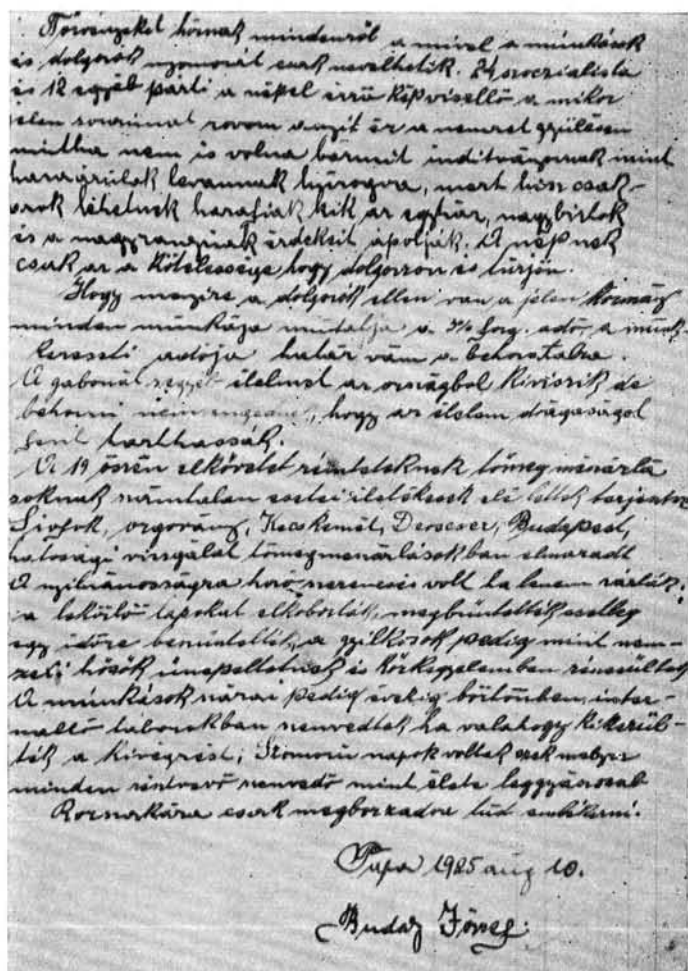 Törvényeket hoznak mindenről a mivel a munkások
és dolgozók nyomorát csak nevelhetik. 24 szoczialista
és 12 egyéb párti a népel érző képviselő a mikor
jelen vannak szavuk anyit ér a nemzet gyülésen
mintha nem is volna bármit inditványoznak mint
hazaárulók levannak hurogva, mert hisz csak-
azok lehetnek hazafiak kik az egyház, nagybirtok
és a nagyranguak érdekeit ápolják. A népnek
csak az a kötelessége hogy dolgozzon és türjön.
Hogy menyire a dolgozók ellen van a jelen kormány
minden munkája mutatja a 3% forg. adó, a munk.
kereseti adója határ vám a behozatalra.
A gabonát s egyéb élelmet az országbol kiviszik de
behozni nem engednek, hogy az élelem drágaságot
fent tarthassák.
A 19 öszén elkövetet rémtetteknek tömeg mészárlá
soknak számtalan esetei illetékesek elé lettek terjesztve
Siófok, orgovány, Kecskemét, Devecser, Budapest,
hatosági vizsgálat tömegmészárlásokban elmaradt
A nyilvánosságra hozó szerencsés volt ha lenem zárták;
a leközlő lapokat elkobozták, megbüntették esetleg
egy időre beszüntették, a gyilkosok pedig mint nem-
zeti hősök ünepeltetnek és közkegyelemben részesültek
A munkások százai pedig évekig börtönben, inter-
náltó táborokban szenvedtek ha valahogy kikerül-
ték a kivégzést; Szomorú napok voltak ezek melyre
minden résztvevő szenvedő mint élete leggyászosab
korszakára csak megborzadva tud emlékezni.
Pápa 1925 aug 10.
Budai József